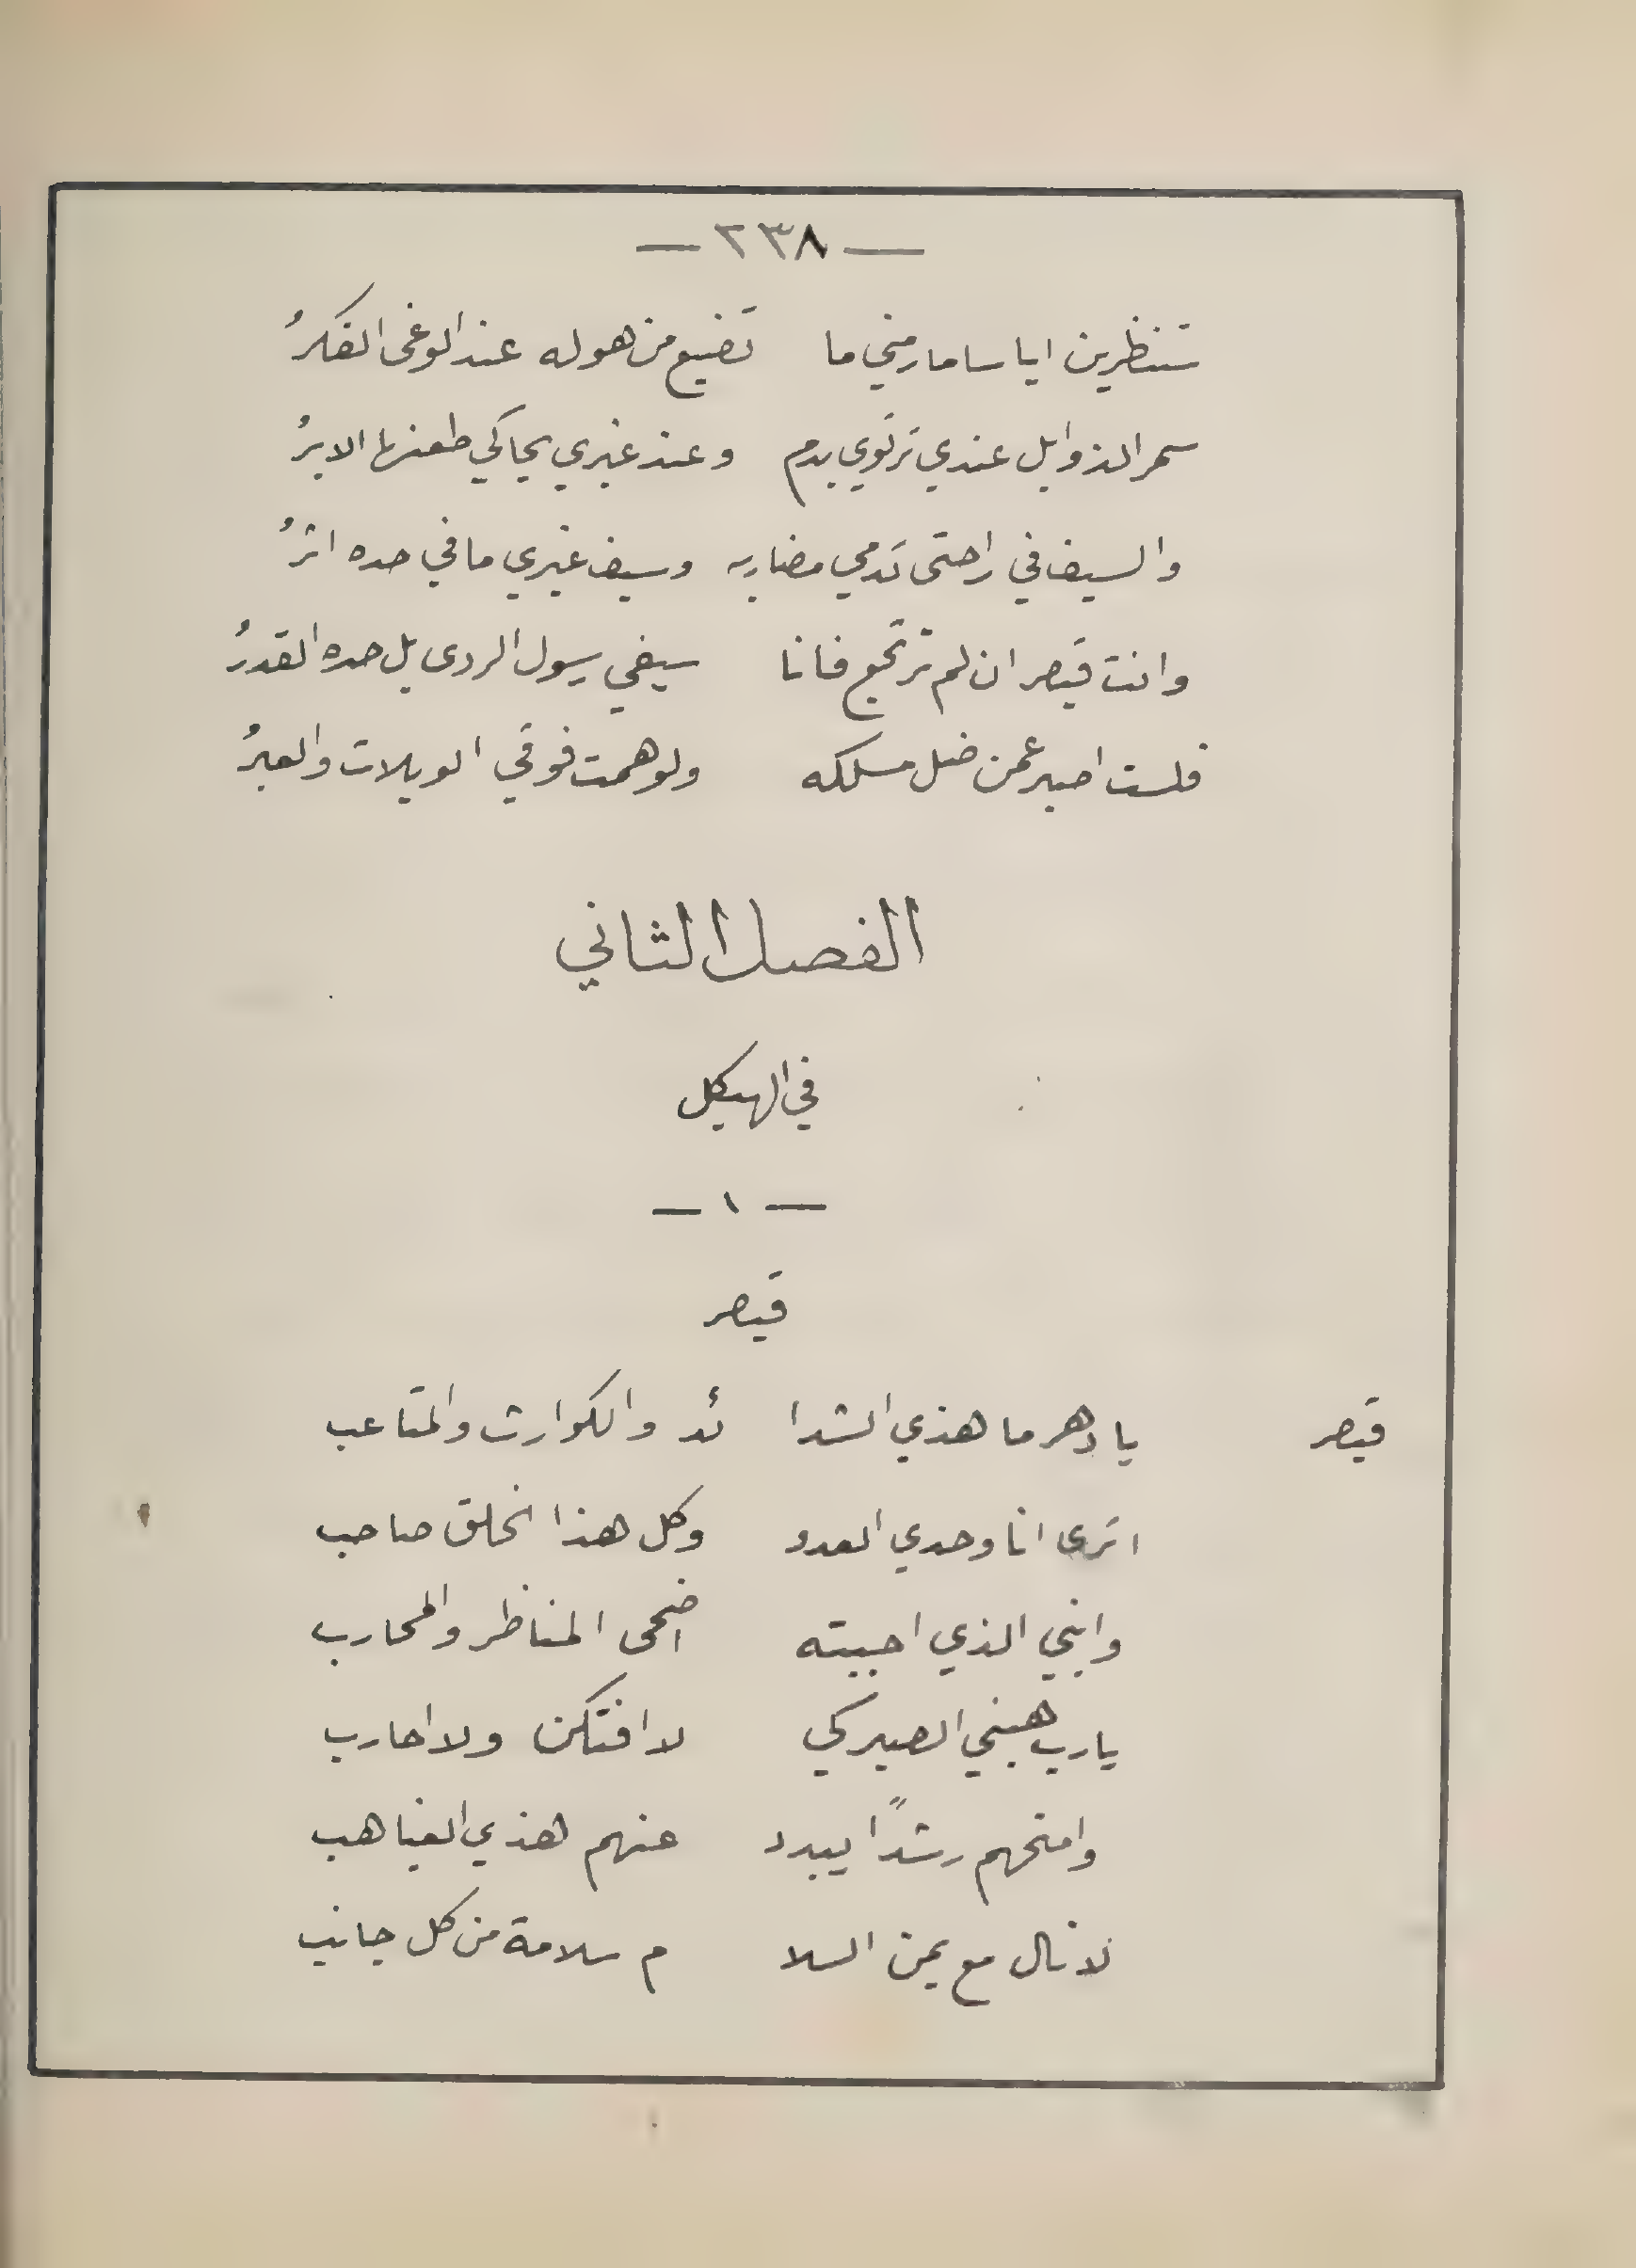 — ٢٣٨ —
ستنظرين ايا سامار مني ما تضيع من هوله عند الوغى الفكرُ
سمر الذوابل عندي ترتوي بدم وعند غيري يحاكي طعنها الابرُ
والسيف في راحتى تدمي مضاربه وسيف غيري ما في حده اثرُ
وانت قيصر ان لم ترتجع فانا سيفي رسول الردى بل حده القدرُ
فلست اصبر عمن ضل مسلكه ولو همت فوقي الويلات والعبرُ
الفصل الثاني
في الهيكل
— ١ —
قيصر
قيصر يا دهر ما هذي الشدا ئد والكوارث والمتاعب
اترى انا وحدي العدو وكل هذا الخلق صاحب
وابني الذي احببته اضحى المناظر والمحارب
يارب هبني الصبر كي لا افتكن ولا احارب
وامنحهم رشداً يبدد عنهم هذي الغياهب
لانال مع يمن السلا م سلامة من كل جانب